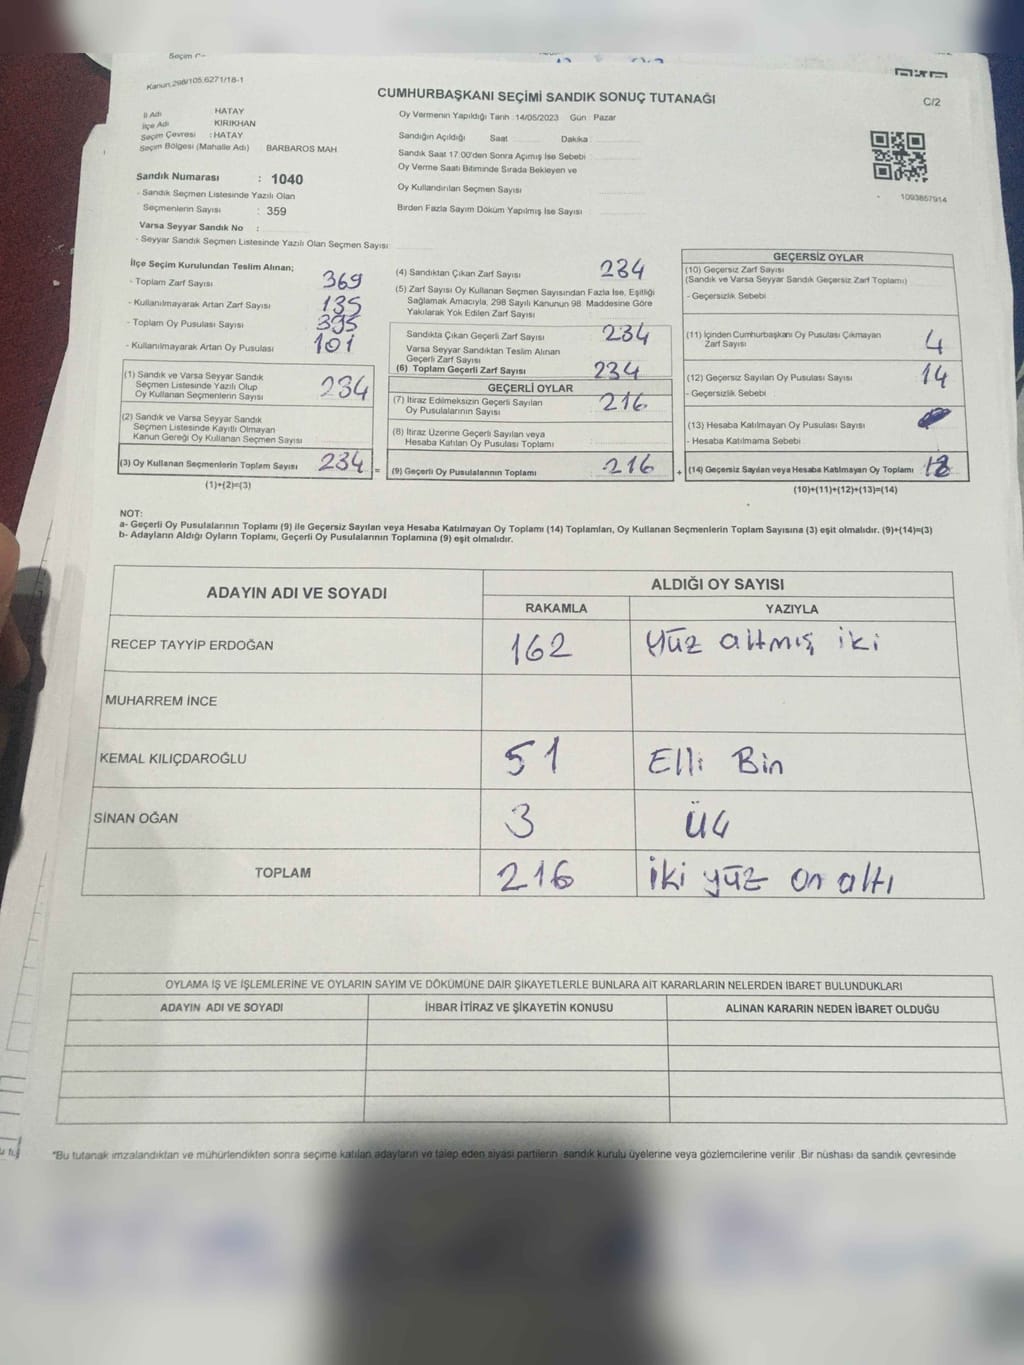 Kanun:298/105,6271/18-1
CUMHURBAŞKANI SEÇİMİ SANDIK SONUÇ TUTANAĞI
C/2
İl Adı HATAY
İlçe Adı KIRIKHAN
Seçim Çevresi : HATAY
Seçim Bölgesi (Mahalle Adı) BARBAROS MAH
Sandık Numarası : 1040
- Sandık Seçmen Listesinde Yazılı Olan
Seçmenlerin Sayısı : 359
Varsa Seyyar Sandık No :
- Seyyar Sandık Seçmen Listesinde Yazılı Olan Seçmen Sayısı
Oy Vermenin Yapıldığı Tarih :14/05/2023 Gün : Pazar
Sandığın Açıldığı Saat Dakika
Sandık Saat 17:00'den Sonra Açımış İse Sebebi
Oy Verme Saati Bitiminde Sırada Bekleyen ve
Oy Kullandırılan Seçmen Sayısı
Birden Fazla Sayım Döküm Yapılmış İse Sayısı
1093857914
İlçe Seçim Kurulundan Teslim Alınan;
- Toplam Zarf Sayısı 369
- Kullanılmayarak Artan Zarf Sayısı 135
- Toplam Oy Pusulası Sayısı 335
- Kullanılmayarak Artan Oy Pusulası 101
(1) Sandık ve Varsa Seyyar Sandık
Seçmen Listesinde Yazılı Olup
Oy Kullanan Seçmenlerin Sayısı 234
(2) Sandık ve Varsa Seyyar Sandık
Seçmen Listesinde Kayıtlı Olmayan
Kanun Gereği Oy Kullanan Seçmen Sayısı
(3) Oy Kullanan Seçmenlerin Toplam Sayısı 234 =
(1)+(2)=(3)
(4) Sandıktan Çıkan Zarf Sayısı 234
(5) Zarf Sayısı Oy Kullanan Seçmen Sayısından Fazla İse, Eşitliği
Sağlamak Amacıyla; 298 Sayılı Kanunun 98. Maddesine Göre
Yakılarak Yok Edilen Zarf Sayısı
Sandıkta Çıkan Geçerli Zarf Sayısı 234
Varsa Seyyar Sandıktan Teslim Alınan
Geçerli Zarf Sayısı
(6) Toplam Geçerli Zarf Sayısı 234
GEÇERLİ OYLAR
(7) İtiraz Edilmeksizin Geçerli Sayılan
Oy Pusulalarının Sayısı 216
(8) İtiraz Üzerine Geçerli Sayılan veya
Hesaba Katılan Oy Pusulası Toplamı
(9) Geçerli Oy Pusulalarının Toplamı 216 +
GEÇERSİZ OYLAR
(10) Geçersiz Zarf Sayısı
(Sandık ve Varsa Seyyar Sandık Geçersiz Zarf Toplamı)
- Geçersizlik Sebebi
(11) İçinden Cumhurbaşkanı Oy Pusulası Çıkmayan
Zarf Sayısı 4
(12) Geçersiz Sayılan Oy Pusulası Sayısı 14
- Geçersizlik Sebebi
(13) Hesaba Katılmayan Oy Pusulası Sayısı
- Hesaba Katılmama Sebebi
(14) Geçersiz Sayılan veya Hesaba Katılmayan Oy Toplamı 18
(10)+(11)+(12)+(13)=(14)
NOT:
a- Geçerli Oy Pusulalarının Toplamı (9) ile Geçersiz Sayılan veya Hesaba Katılmayan Oy Toplamı (14) Toplamları, Oy Kullanan Seçmenlerin Toplam Sayısına (3) eşit olmalıdır. (9)+(14)=(3)
b- Adayların Aldığı Oyların Toplamı, Geçerli Oy Pusulalarının Toplamına (9) eşit olmalıdır.
ADAYIN ADI VE SOYADI ALDIĞI OY SAYISI
RAKAMLA YAZIYLA
RECEP TAYYİP ERDOĞAN 162 Yüz altmış iki
MUHARREM İNCE
KEMAL KILIÇDAROĞLU 51 Elli Bin
SİNAN OĞAN 3 Üç
TOPLAM 216 İki yüz on altı
OYLAMA İŞ VE İŞLEMLERİNE VE OYLARIN SAYIM VE DÖKÜMÜNE DAİR ŞİKAYETLERLE BUNLARA AİT KARARLARIN NELERDEN İBARET BULUNDUKLARI
ADAYIN ADI VE SOYADI İHBAR İTİRAZ VE ŞİKAYETİN KONUSU ALINAN KARARIN NEDEN İBARET OLDUĞU
*Bu tutanak imzalandıktan ve mühürlendikten sonra seçime katılan adayların ve talep eden siyasi partilerin sandık kurulu üyelerine veya gözlemcilerine verilir .Bir nüshası da sandık çevresinde